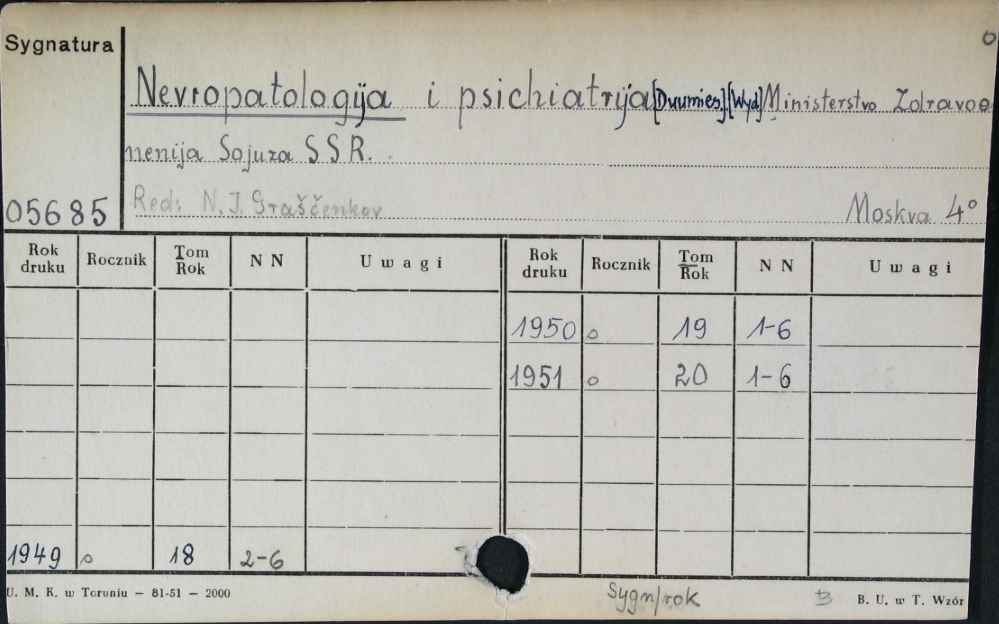 Sygnatura
Nevropatologija i psichiatrija [Dwumies] [Wyd] Ministerstvo Zdravoo
nenija Sojuza SSR.
05685 Red: N. I. Graščenkov Moskva 4°
Rok druku Rocznik Tom Rok N N Uwagi Rok druku Rocznik Tom Rok N N Uwagi
1950 o 19 1-6
1951 o 20 1-6
1949 o 18 2-6
U. M. K. w Toruniu – 81-51 – 2000
Sygn/rok
B. U. w T. Wzór